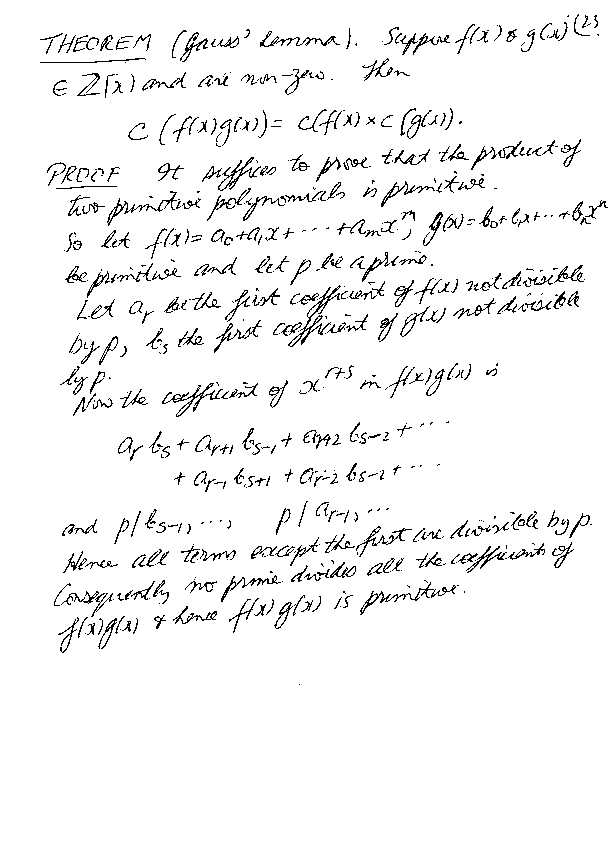 THEOREM (Gauss' Lemma). Suppose f(x) & g(x) (23)
∈ Z[x] and are non-zero. Then
C(f(x)g(x)) = C(f(x) × C(g(x)).
PROOF It suffices to prove that the product of
two primitive polynomials is primitive.
So let f(x) = a₀+a₁x+ ··· +aₘxᵐ, g(x) = b₀+b₁x+ ··· +bₙxⁿ
be primitive and let p be a prime.
Let aᵣ be the first coefficient of f(x) not divisible
by p, bₛ the first coefficient of g(x) not divisible
by p.
Now the coefficient of xʳ⁺ˢ in f(x)g(x) is
aᵣbₛ + aᵣ₊₁bₛ₋₁ + aᵣ₊₂bₛ₋₂ + ···
+ aᵣ₋₁bₛ₊₁ + aᵣ₋₂bₛ₋₂ + ···
and p/bₛ₋₁, ···, p/aᵣ₋₁, ···
Hence all terms except the first are divisible by p.
Consequently no prime divides all the coefficients of
f(x)g(x) & hence f(x)g(x) is primitive.